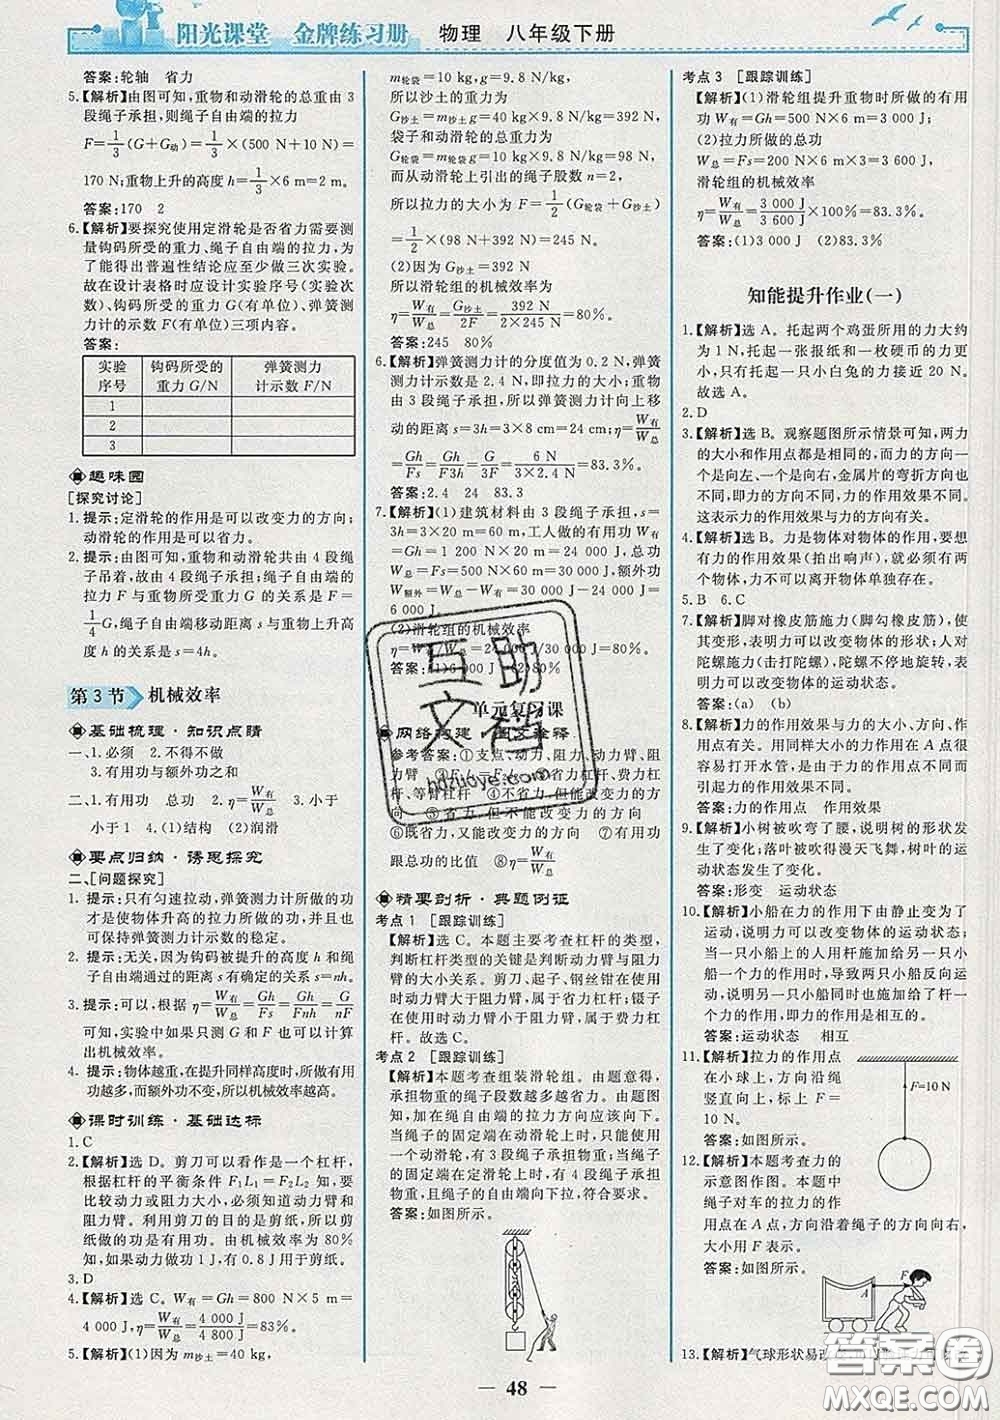 阳光课堂 金牌练习册 物理 八年级下册
答案:轮轴 省力
5.【解析】由图可知,重物和动滑轮的总重由 3
段绳子承担,则绳子自由端的拉力
F=1/3(G+G动)=1/3×(500 N+10 N)=
170 N;重物上升的高度 h=1/3×6 m=2 m。
答案:170 2
6.【解析】要探究使用定滑轮是否省力需要测
量钩码所受的重力、绳子自由端的拉力,为
了能得出普遍性结论应至少做三次实验。
故在设计表格时应设计实验序号(实验次
数)、钩码所受的重力 G(有单位)、弹簧测
力计的示数 F(有单位)三项内容。
答案:
实验序号 钩码所受的重力 G/N 弹簧测力计示数 F/N
1
2
3
趣味园
[探究讨论]
1.提示:定滑轮的作用是可以改变力的方向;
动滑轮的作用是可以省力。
2.提示:由图可知,重物和动滑轮共由 4 段绳
子吊着,故由 4 段绳子承担;绳子自由端的
拉力 F 与重物所受重力 G 的关系是 F=
1/4G,绳子自由端移动距离 s 与重物上升高
度 h 的关系是 s=4h。
第 3 节 机械效率
基础梳理·知识点睛
一、1.必须 2.不得不做
3.有用功与额外功之和
二、1.有用功 总功 2.η=W有/W总 3.小于
小于 1 4.(1)结构 (2)润滑
要点归纳·诱思探究
二、[问题探究]
1.提示:只有匀速拉动,弹簧测力计所做的功
才是使物体升高的拉力所做的功,并且可
保持弹簧测力计示数的稳定。
2.提示:无关,因为钩码被提升的高度 h 和绳
子自由端通过的距离 s 有确定的关系 s=nh。
3.提示:可以,根据 η=W有/W总=Gh/Fs=Gh/Fnh=G/nF
可知,实验中如果只测 G 和 F 也可以计算
出机械效率。
4.提示:物体越重,在提升同样高度时,所做有
用功越多,而额外功不变,所以机械效率越高。
课时训练·基础达标
1.C
2.【解析】选 D。剪刀可以看作是一个杠杆,
根据杠杆的平衡条件 F₁L₁=F₂L₂ 知,要
比较动力或阻力大小,必须知道动力臂和
阻力臂。利用剪刀的目的是剪纸,所以剪
纸的功是有用功。由机械效率为 80%
知,如果动力做功 1 J,有 0.8 J 用于剪纸。
3.D
4.【解析】选 C。W有=Gh=800 N×5 m=
4 000 J,η=W有/W总=4 000 J/4 800 J=83%。
5.【解析】(1)因为 m砂土=40 kg,
m轮袋=10 kg,g=9.8 N/kg,
所以沙土的重力为
G砂土=m砂土g=40 kg×9.8 N/kg=392 N,
袋子和动滑轮的总重力为
G轮袋=m轮袋g=10 kg×9.8 N/kg=98 N,
而从动滑轮上引出的绳子股数 n=2,
所以拉力的大小为 F=1/2(G轮袋+G砂土)
=1/2×(98 N+392 N)=245 N。
(2)因为 G砂土=392 N,
所以滑轮的机械效率为
η=W有/W总=G砂土/2F=392 N/2×245 N=80%。
答案:245 80%
6.【解析】弹簧测力计的分度值为 0.2 N,弹簧
测力计示数是 2.4 N,即拉力的大小;重物
由 3 段绳子承担,所以弹簧测力计向上移
动的距离 s=3h=3×8 cm=24 cm;η=W有/W总
=Gh/Fs=Gh/F3h=G/3F=6 N/3×2.4 N=83.3%。
答案:2.4 24 83.3
7.【解析】(1)建筑材料由 3 段绳子承担,s=
3h=3×20 m=60 m,工人做的有用功 W有
=Gh=1 200 N×20 m=24 000 J,总功
W总=Fs=500 N×60 m=30 000 J,额外功
W额外=W总-W有=30 000 J-24 000 J=
6 000 J。
(2)滑轮组的机械效率
η=W有/W总=24 000 J/30 000 J=80%。
答案:(1)6 000 J (2)80%
单元复习课
网络构建·图文诠释
参考答案:①支点、动力、阻力、动力臂、阻
力臂 ②F₁l₁=F₂l₂ ③省力杠杆、费力杠杆、
等臂杠杆 ④不省力,但能改变力的方向
⑤省力,但不能改变力的方向
⑥既省力,又能改变力的方向 ⑦有用功
跟总功的比值 ⑧η=W有/W总
精要剖析·典题例证
考点 1 [跟踪训练]
【解析】选 C。本题主要考查杠杆的类型,
判断杠杆类型的关键是判断动力臂与阻力
臂的大小关系。剪刀、起子、钢丝钳在使用
时动力臂大于阻力臂,属于省力杠杆;镊子
在使用时动力臂小于阻力臂,属于费力杠
杆。故选 C。
考点 2 [跟踪训练]
【解析】本题考查组装滑轮组。由题意得,
承担物重的绳子段数越多越省力。由题图
知,加在绳自由端的拉力方向应该向下。
当绳子的固定端在动滑轮上时,只能向上用
力,有 3 段绳子承担物重;当绳子的
固定端在定滑轮上时,有 4 段绳子承担
物重,且绳子的自由端向下,符合要求。
答案:如图所示。
考点 3 [跟踪训练]
【解析】(1)滑轮组提升重物时所做的有用
功 W有=Gh=500 N×6 m=3 000 J
(2)拉力所做的总功
W总=Fs=200 N×6 m×3=3 600 J,
滑轮组的机械效率
η=W有/W总=3 000 J/3 600 J×100%=83.3%。
答案:(1)3 000 J (2)83.3%
知能提升作业(一)
1.【解析】选 A。托起两个鸡蛋所用的力大约
为 1 N,托起一张报纸和一枚硬币的力更
小,只有托起一只小白兔的力接近 20 N。
故选 A。
2.D
3.【解析】选 B。观察题图所示情景可知,两力
的大小和作用点都是相同的,而力的方向一
个是向左、一个是向右,金属片的弯折方向也
不同,即力的方向不同,力的作用效果不同。
这表示力的作用效果与力的方向有关。
4.【解析】选 B。力是物体对物体的作用,要想
有力的作用效果(拍出响声),就必须有两
个物体,力不能离开物体单独存在。
5.B 6.C
7.【解析】脚对橡皮筋施力(脚勾橡皮筋),使
其变形,表明力可以改变物体的形状;人对
陀螺施力(击打陀螺),陀螺不停地旋转,表
明力可以改变物体的运动状态。
答案:(a) (b)
8.【解析】力的作用效果与力的大小、方向、作
用点有关。用同样大小的力作用在 A 点很
容易打开水管,是由于力的作用点不同,力
的作用效果不同。
答案:力的作用点 作用效果
9.【解析】小树被吹弯了腰,说明树的形状发
生了变化。落叶被吹得漫天飞舞,树叶的运动
状态发生了变化。
答案:形变 运动状态
10.【解析】小船在力的作用下由静止变为了运
动,说明力可以改变物体的运动状态;
当一只小船上的人用杆施加给另一只小
船一个力的作用时,导致两只小船反向运
动,说明两只小船同时也施加给了杆一
个力的作用,即力的作用是相互的。
答案:运动状态 相互
11.【解析】拉力的作用点
在小球上,方向沿绳
竖直向上,标上 F=
10 N。
答案:如图所示。
F=10 N
12.【解析】本题考查力的
示意图作图。本题中
绳子对车的拉力的作
用点在 A 点,方向沿着绳子的方向向右,
大小用 F 表示。
答案:如图所示。
A F
13.【解析】气球形状易改
48
互助文档
hdzuoye.com
答案圈
MXQE.COM